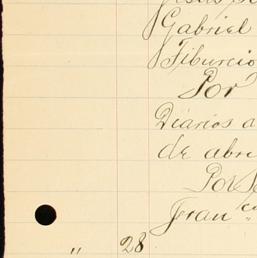 Gabriel
Tiburcio
Por
Diarios a
de abri
Por
Fran co
" 28